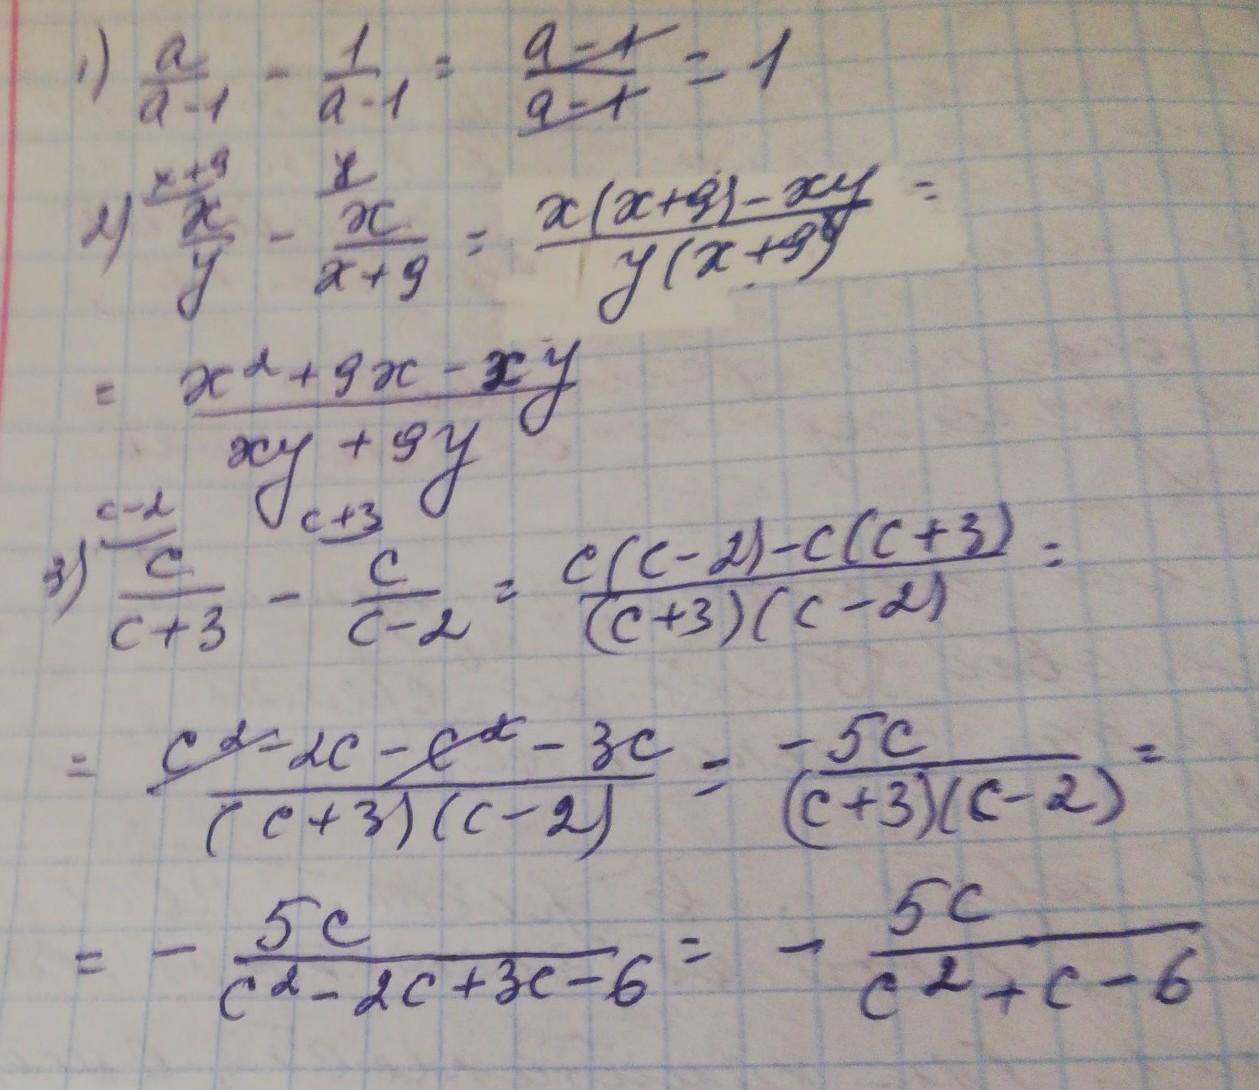 1) a/(a-1) - 1/(a-1) = (a-1)/(a-1) = 1
2) x/y (x+9) - x/(x+9) (y) = (x(x+9)-xy)/(y(x+9)) =
= (x²+9x-xy)/(xy+9y)
3) c/(c+3) (c-2) - c/(c-2) (c+3) = (c(c-2)-c(c+3))/((c+3)(c-2)) =
= (c²-2c-c²-3c)/((c+3)(c-2)) = -5c/((c+3)(c-2)) =
= - 5c/(c²-2c+3c-6) = - 5c/(c²+c-6)